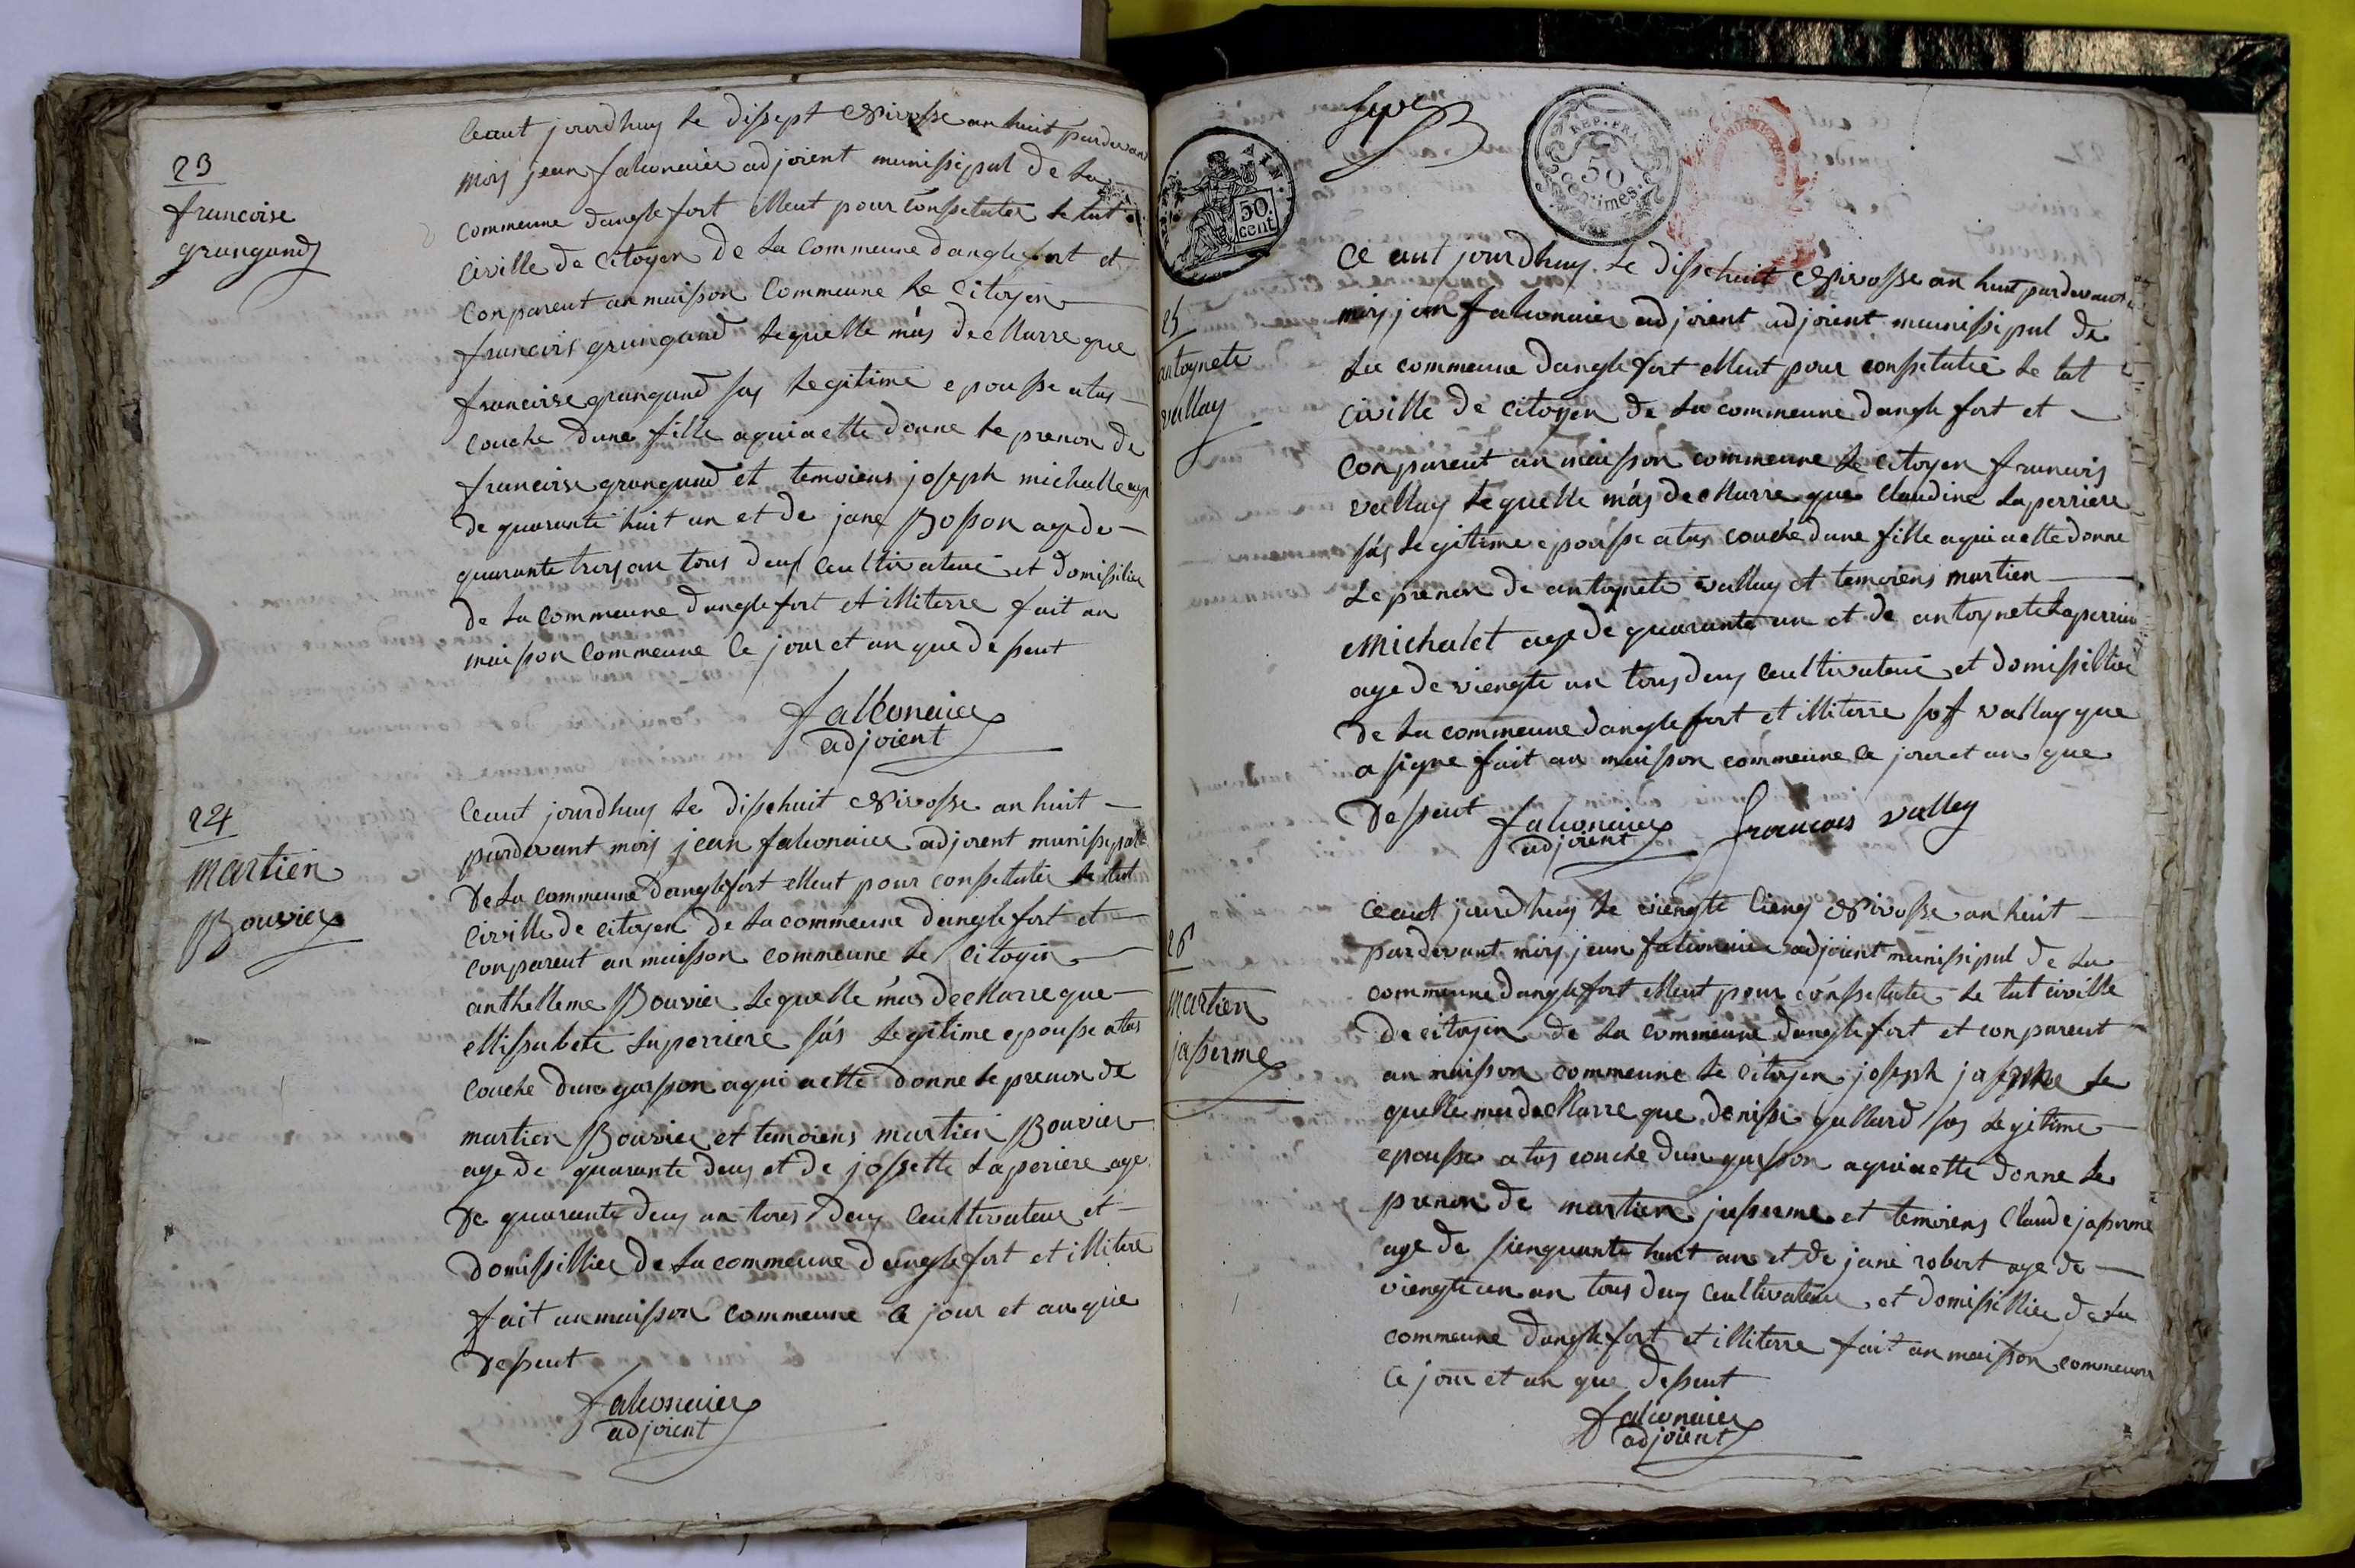 23
francoise
grangand
Ceaut jourdhuy le dissept Nivosse an huit pardevan
moy jean falconnier adjoient munissipal de la
commeune danglefort elleut pour conssetater le tat
civille de citoyen de la commeune danglefort et
conpareut an maisson commeune le citoyen
francois grangand lequelle mas decllarre que
francoise grangand sas legitime epousse atas
couche dune fille aquia ette donne le prenon de
francoise grangand et temoiens joseph michalle age
de quarante huit an et de jane Bosson age de
quarante troy an tous deus ceultivateur et domissilie
de la commeune danglefort et illiterre fait an
maisson commeune ce jour et an que desseut
falconnier
adjoient
24
martien
Bouvier
Ceaut jourdhuy le dissehuit Nivosse an huit
pardevant moy jean falconnier adjoient munissipalle
de la commeune danglefort elleut pour conssetater le tat
civille de citoyen de la commeune danglefort et
conpareut an maisson commeune le citoyin
anthelleme Bouvier lequelle mas decllarre que
ellissabete laperriere sas legitime epousse atas
couche dun garsson aqui aette donne le prenon de
martien Bouvier et temoiens martien Bouvier
age de quarante deus et de jossette laperiere age
de quarante deuy an tous deuy ceultivateur et
domissillier de la commeune danglefort et illitere
fait an maisson commeune ce jour et an que
desseut
falconnier
adjoient
REP. FRA.
50
centimes.
50
cent
25
antoynete
vallay
Ce aut jourdhuy le dissehuit Nivosse an huit pardevant
moy jan falconnier adjoient adjoient munissipal de
la commeune danglefort elleut pour conssetatie le tat
civille de citoyen de la commeune danglefort et
conpareut an maisson commeune le citoyen francois
vallay lequelle mas decllarre que claudine laperriere
sas legitime epousse atas couche dune fille aquia ette donne
le prenon de antoynete vallay et temoiens martien
Michalet age de quarante an et de antoynete laperrier
age de viengte an tous deuy ceultivateur et domissilier
de la commeune danglefort et illiterre sof vallay que
a signe fait an maisson commeune ce jour et an que
desseut falconnier francois valley
adjoient
26
martien
jasserme
ceaut jourdhuy le viengte cienq Nivosse an huit
pardevant moy jean falconnier adjoient munissipal de la
commeune danglefort elleut pour conssetater le tat civille
de citoyin de la commeune danglefort et conpareut
an maisson commeune le citoyen joseph jasserme le
quelle mas decllarre que denisse gallard sas legitime
epousse atas couche dun garsson aquiaette donne le
prenon de martien jasserme et temoiens Claude jasserme
age de sienquante huit an et de jane robert age de
viengte un an tous deuy ceultivateur et domissillier de la
commeune danglefort et illiterre fait an maisson commeune
ce jour et an que desseut
falconnier
adjoient